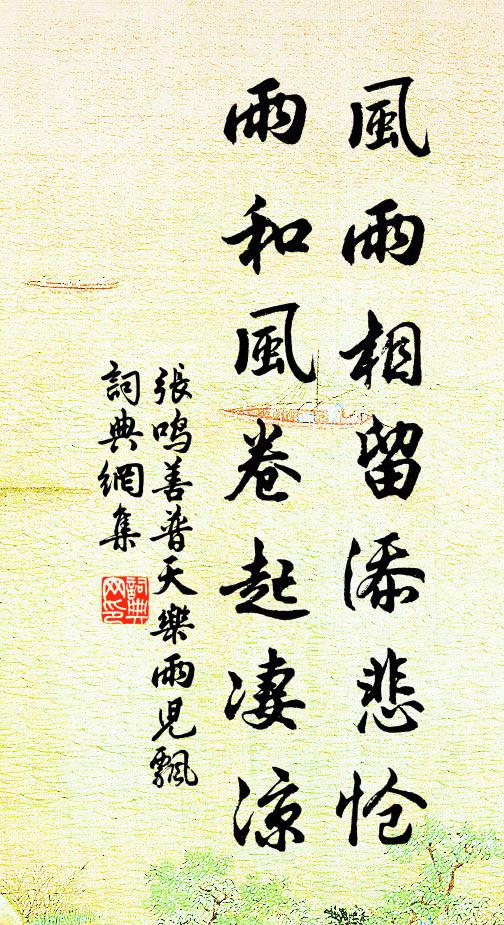 風雨相留添悲愴
雨和風卷起淒涼
張鳴善普天樂雨兒飄
詞典網集
詞典网印